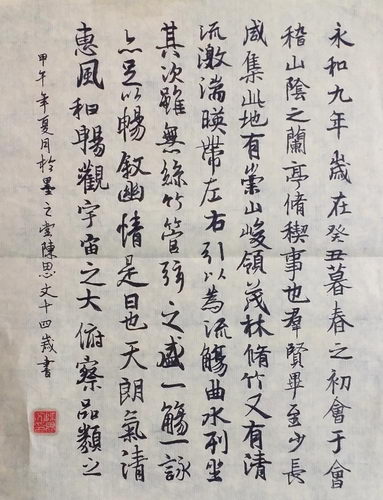 永和九年歲在癸丑暮春之初會于會
稽山陰之蘭亭脩稧事也羣賢畢至少長
咸集此地有崇山峻領茂林脩竹又有清
流激湍暎帶左右引以為流觴曲水列坐
其次雖無絲竹管弦之盛一觴一詠
亦足以暢叙幽情是日也天朗氣清
惠風和暢觀宇宙之大俯察品類之
甲午年夏月於墨之堂陳思文十四歲書